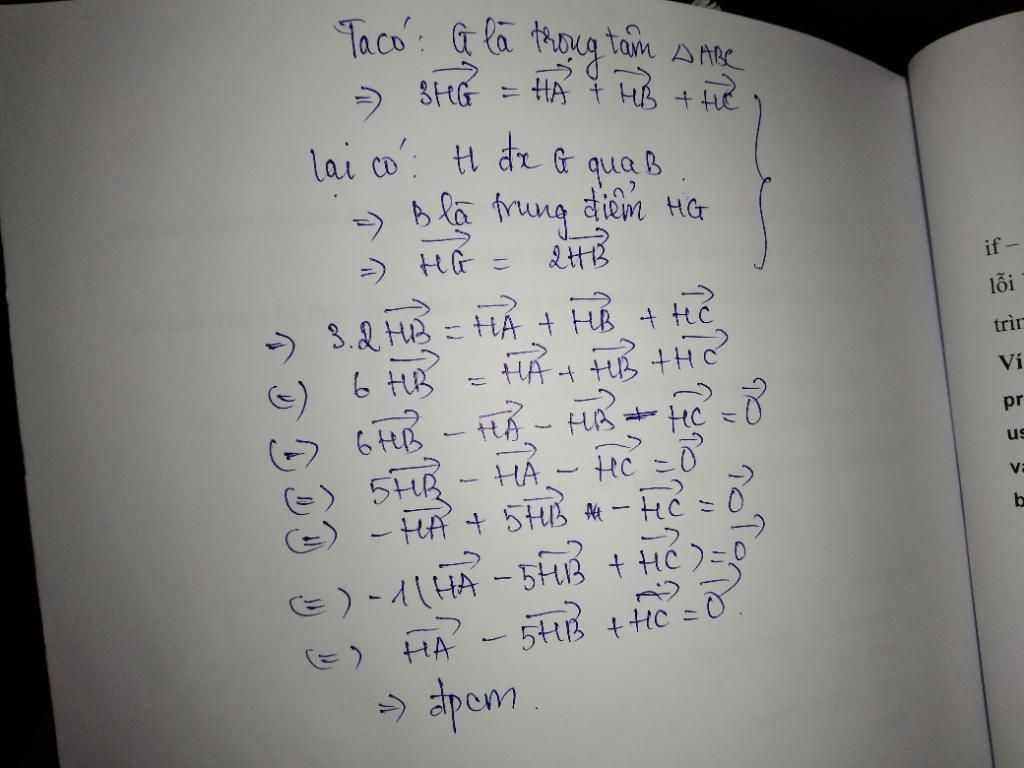 Ta có: G là trọng tâm △ABC
=> 3HG⃗ = HA⃗ + HB⃗ + HC⃗
Lại có: H đx G qua B.
=> B là trung điểm HG
=> HG⃗ = 2HB⃗
=> 3.2HB⃗ = HA⃗ + HB⃗ + HC⃗
(=) 6HB⃗ = HA⃗ + HB⃗ + HC⃗
(=) 6HB⃗ - HA⃗ - HB⃗ - HC⃗ = 0⃗
(=) 5HB⃗ - HA⃗ - HC⃗ = 0⃗
(=) -HA⃗ + 5HB⃗ - HC⃗ = 0⃗
(=) -1(HA⃗ - 5HB⃗ + HC⃗) = 0⃗
(=) HA⃗ - 5HB⃗ + HC⃗ = 0⃗.
=> đpcm.
if –
lỗi
trìn
Ví
pr
us
va
b